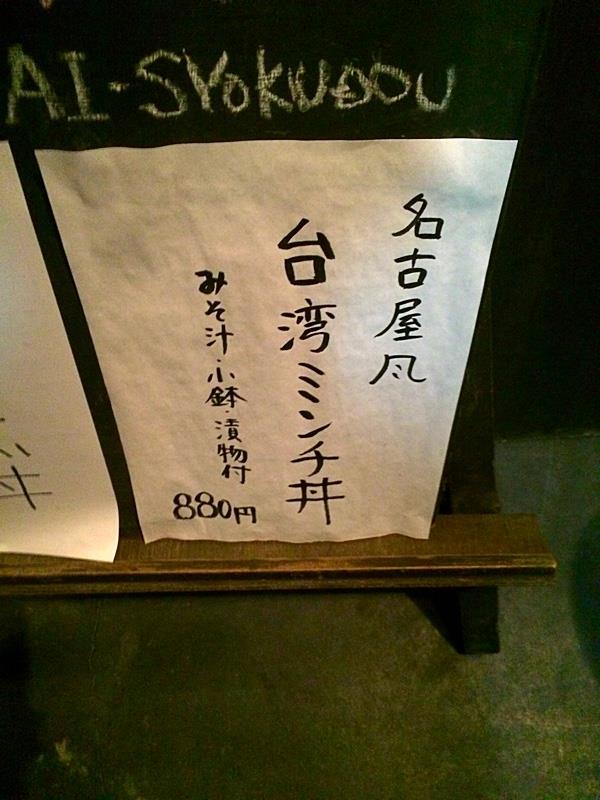 AI-SYOKUDOU
名古屋風
台湾ミンチ丼
みそ汁・小鉢・漬物付
880円
丼